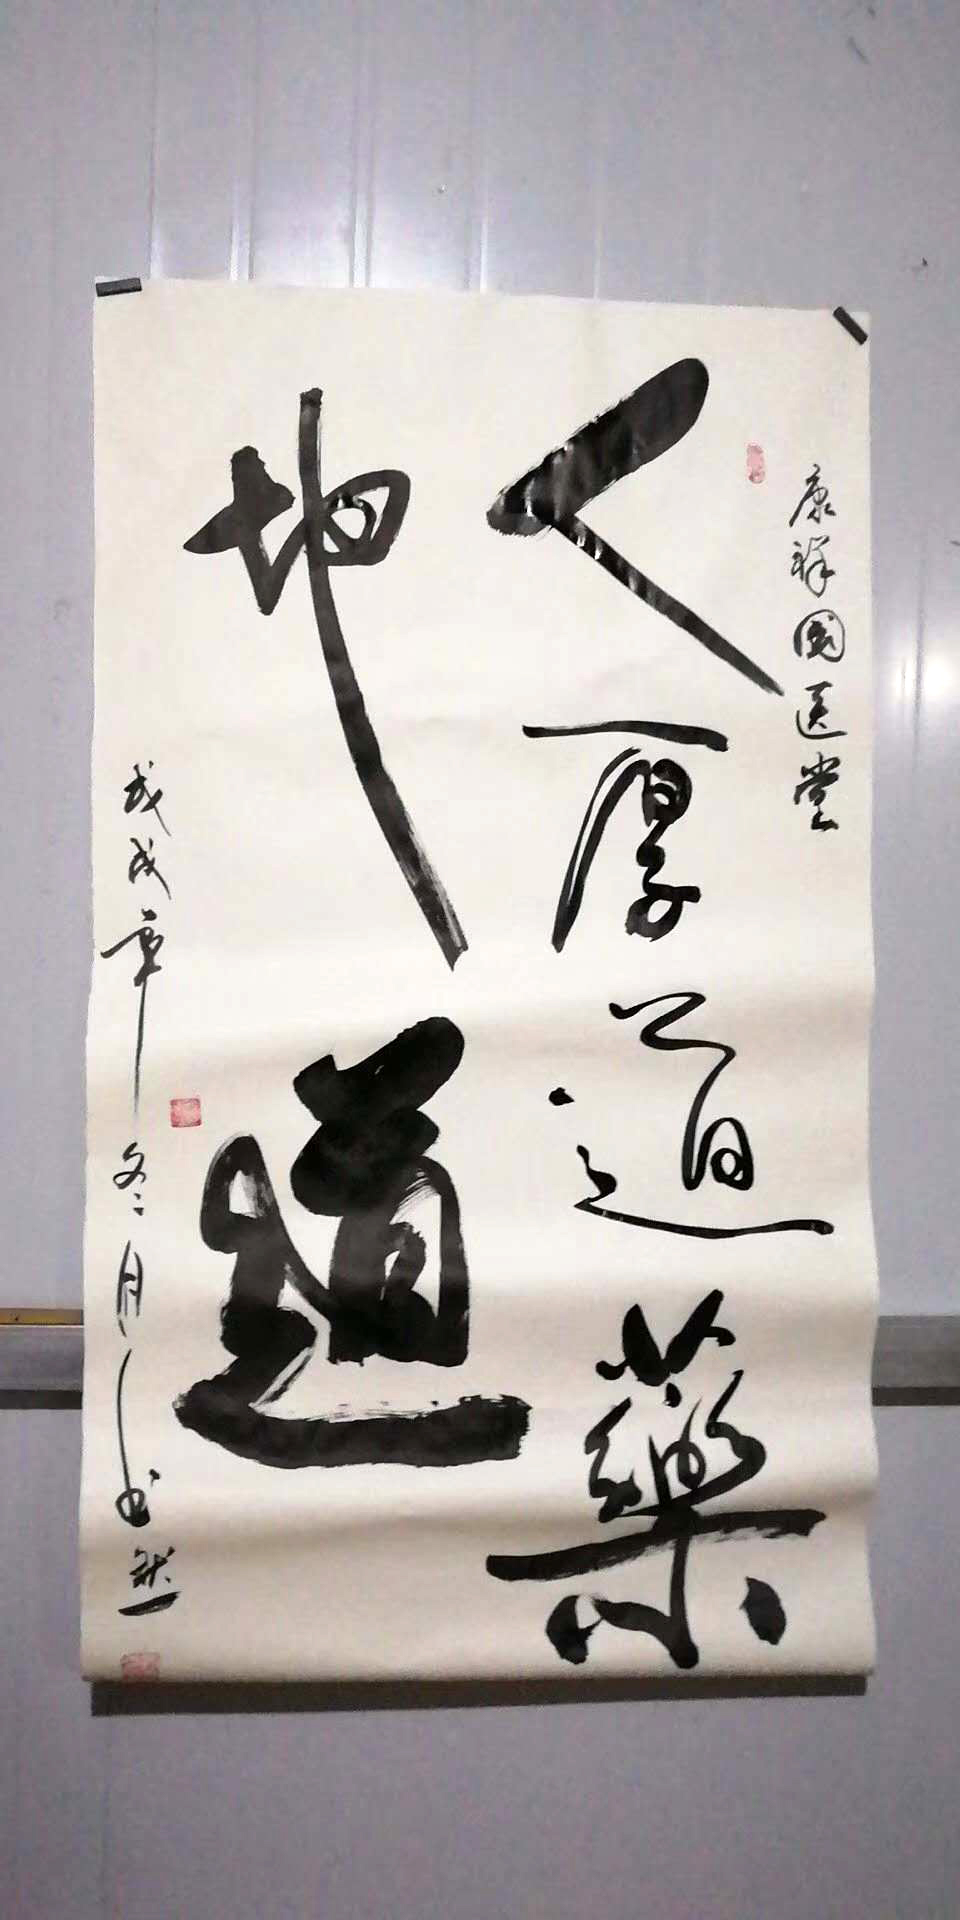 康祥國医堂
人厚道藥
地道
戊戌年冬月